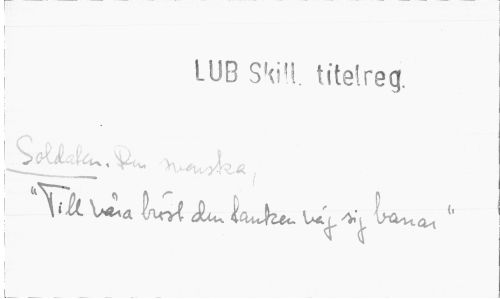 LUB Skill. titelreg.
Soldaten. Den svenska,
"Till våra bröst den tanken väg sig banar"